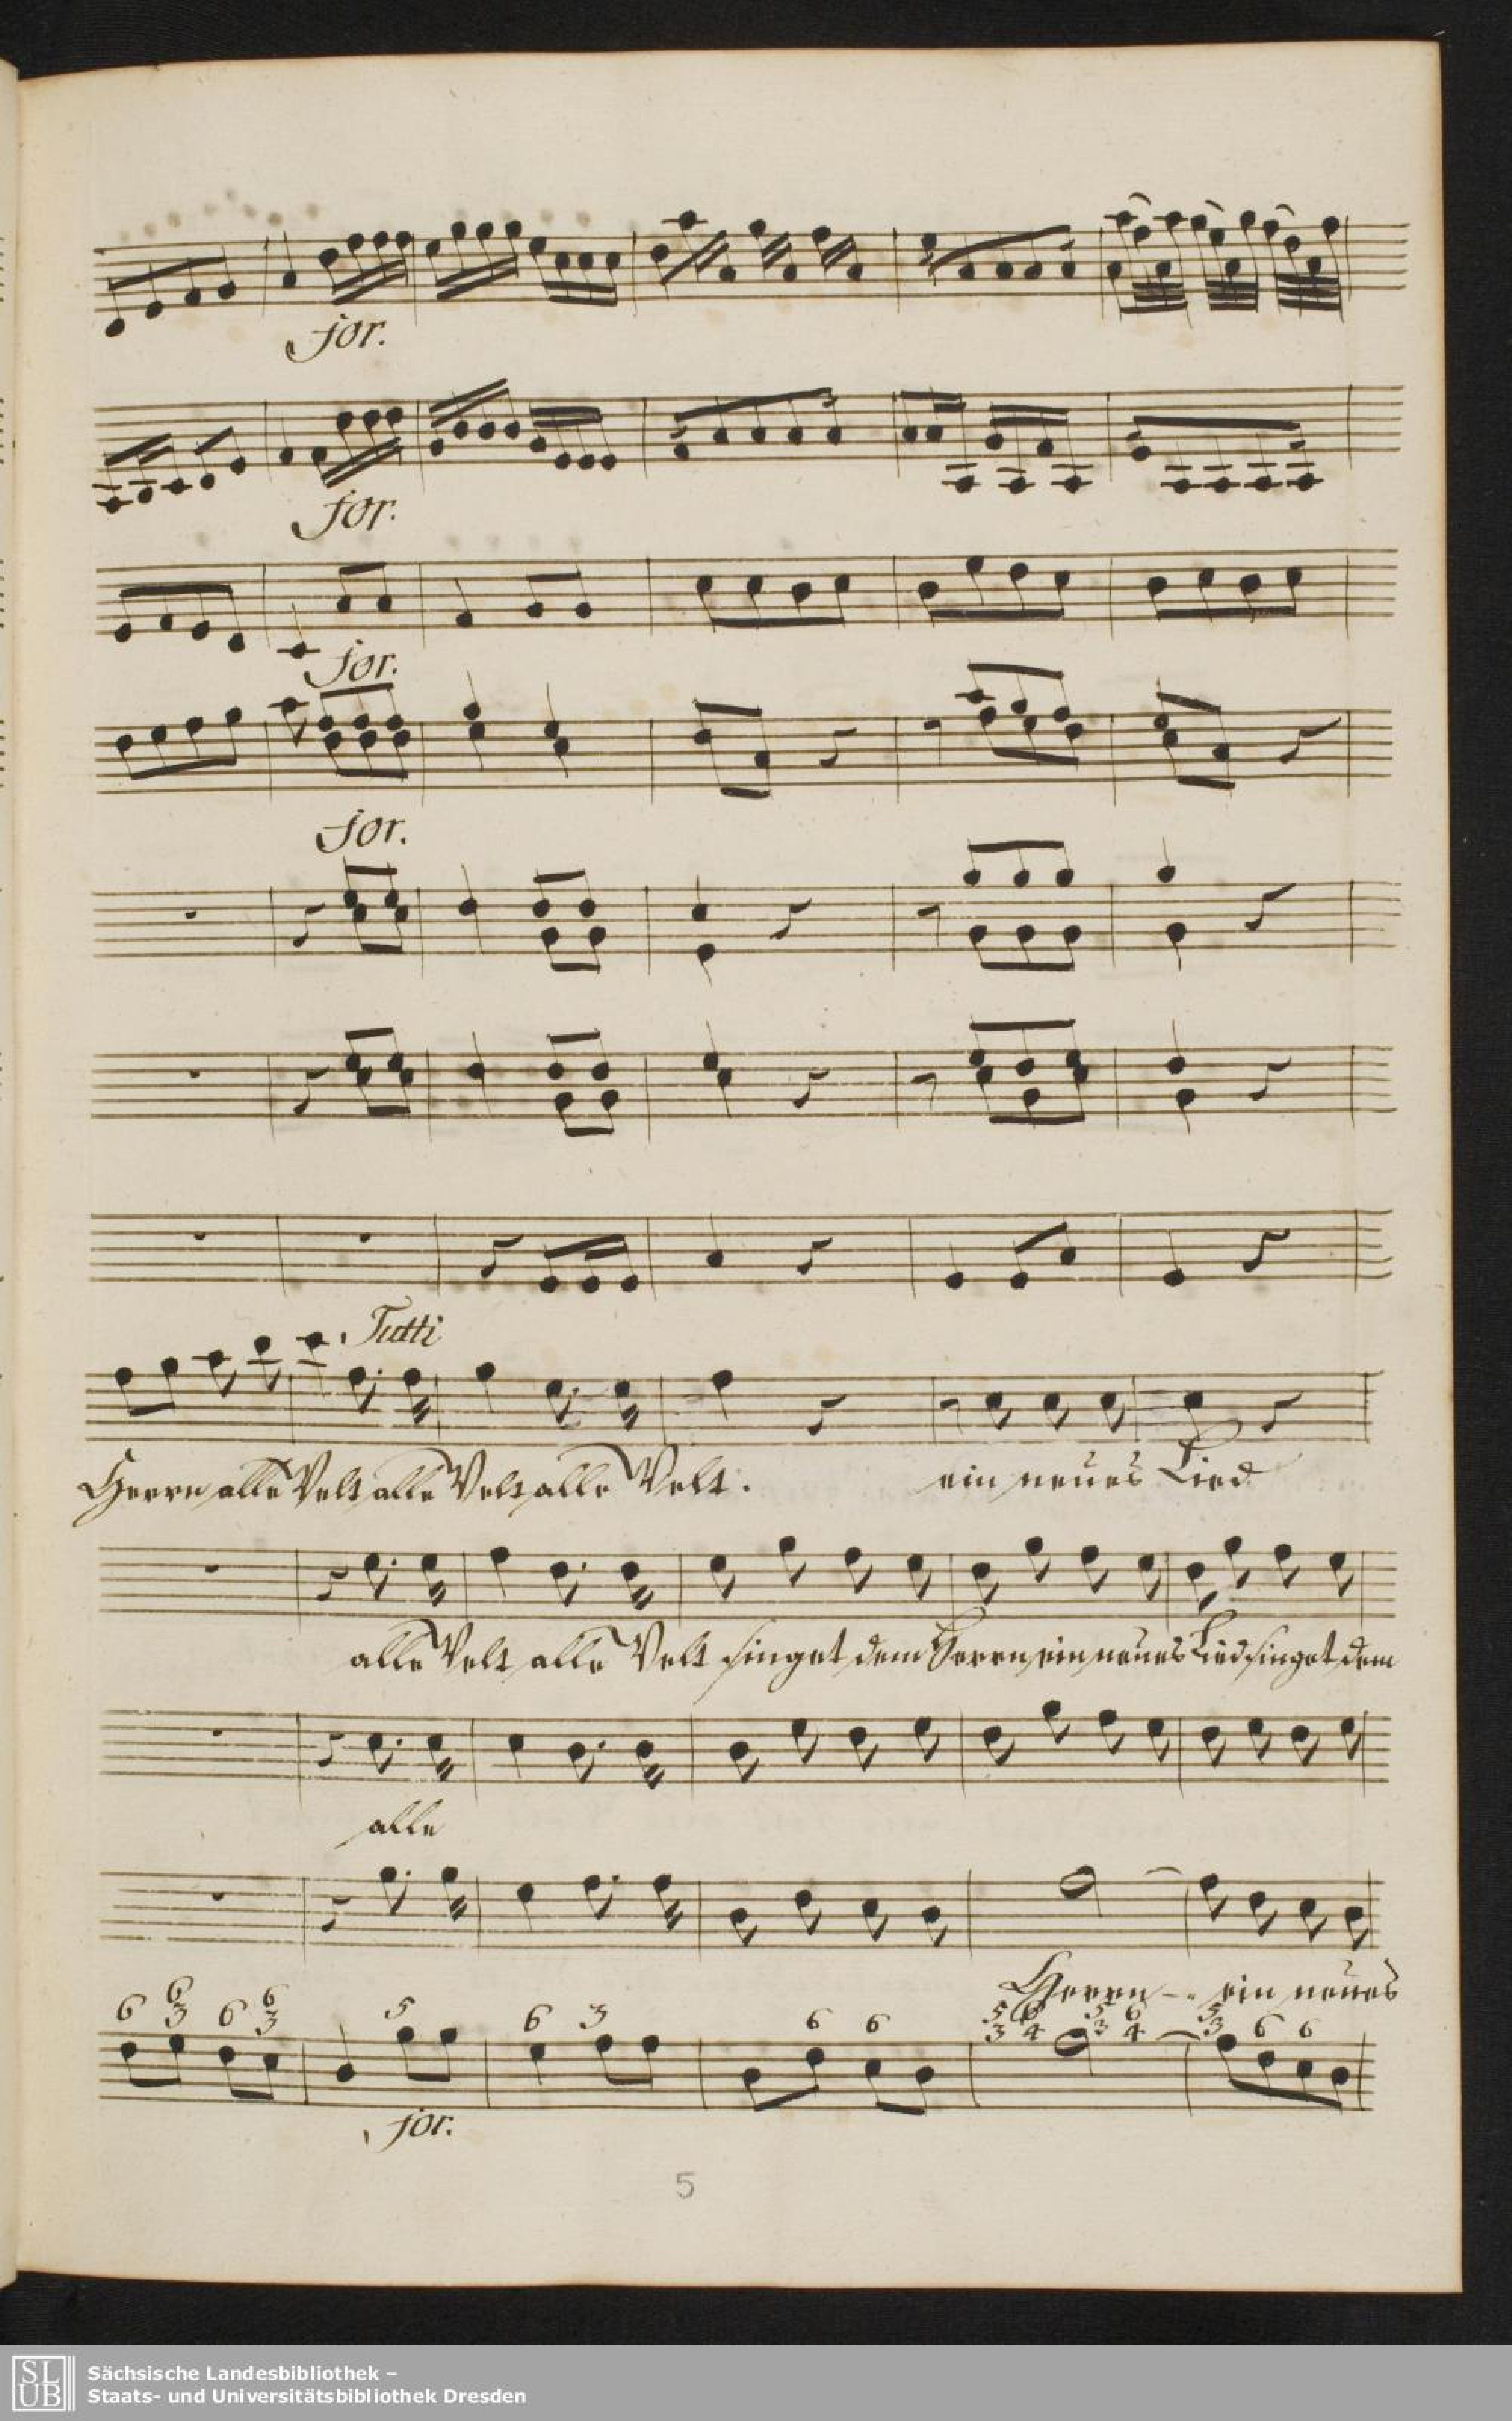 for.
for.
for.
for.
Tutti
Herrn alle Welt alle Welt alle Welt. ein neues Lied
alle Welt alle Welt singet dem Herrn ein neues Lied singet dem
alle
Herrn - - ein neues
6 6 6 6 5 6 3 6 6 5 6 5 6 5 6 6
3 3 3 4 3 4 3
for.
5
SLUB
Sächsische Landesbibliothek –
Staats- und Universitätsbibliothek Dresden